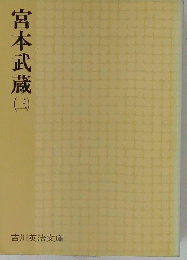 宮本武蔵
(三)
吉川英治文庫